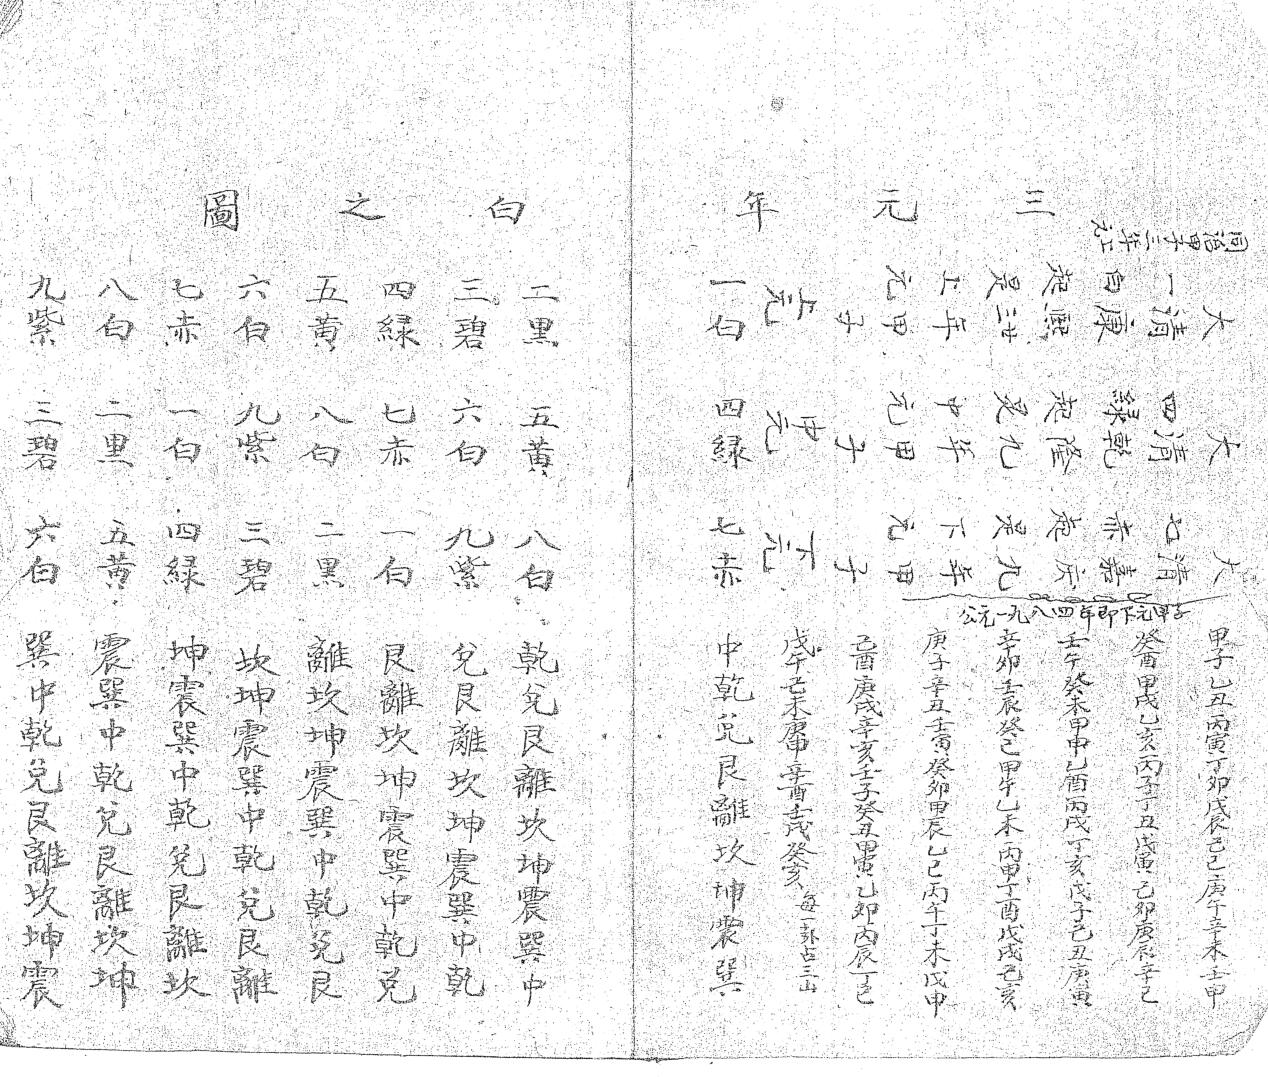 三元年白之圖
同治甲子三年上元
大清康熙廿三年甲子
一白起是上元
大清乾隆九年甲子
四綠起是中元
大清嘉慶九年甲子
七赤起是下元
公元一九八四年即下元甲子
甲子乙丑丙寅丁卯戊辰己巳庚午辛未壬申
癸酉甲戌乙亥丙子丁丑戊寅己卯庚辰辛巳
壬午癸未甲申乙酉丙戌丁亥戊子己丑庚寅
辛卯壬辰癸巳甲午乙未丙申丁酉戊戌己亥
庚子辛丑壬寅癸卯甲辰乙巳丙午丁未戊申
己酉庚戌辛亥壬子癸丑甲寅乙卯丙辰丁巳
上元 中元 下元 戊午己未庚申辛酉壬戌癸亥 每一卦占三山
一白 四綠 七赤 中乾兌艮離坎坤震巽
二黑 五黃 八白 乾兌艮離坎坤震巽中
三碧 六白 九紫 兌艮離坎坤震巽中乾
四綠 七赤 一白 艮離坎坤震巽中乾兌
五黃 八白 二黑 離坎坤震巽中乾兌艮
六白 九紫 三碧 坎坤震巽中乾兌艮離
七赤 一白 四綠 坤震巽中乾兌艮離坎
八白 二黑 五黃 震巽中乾兌艮離坎坤
九紫 三碧 六白 巽中乾兌艮離坎坤震